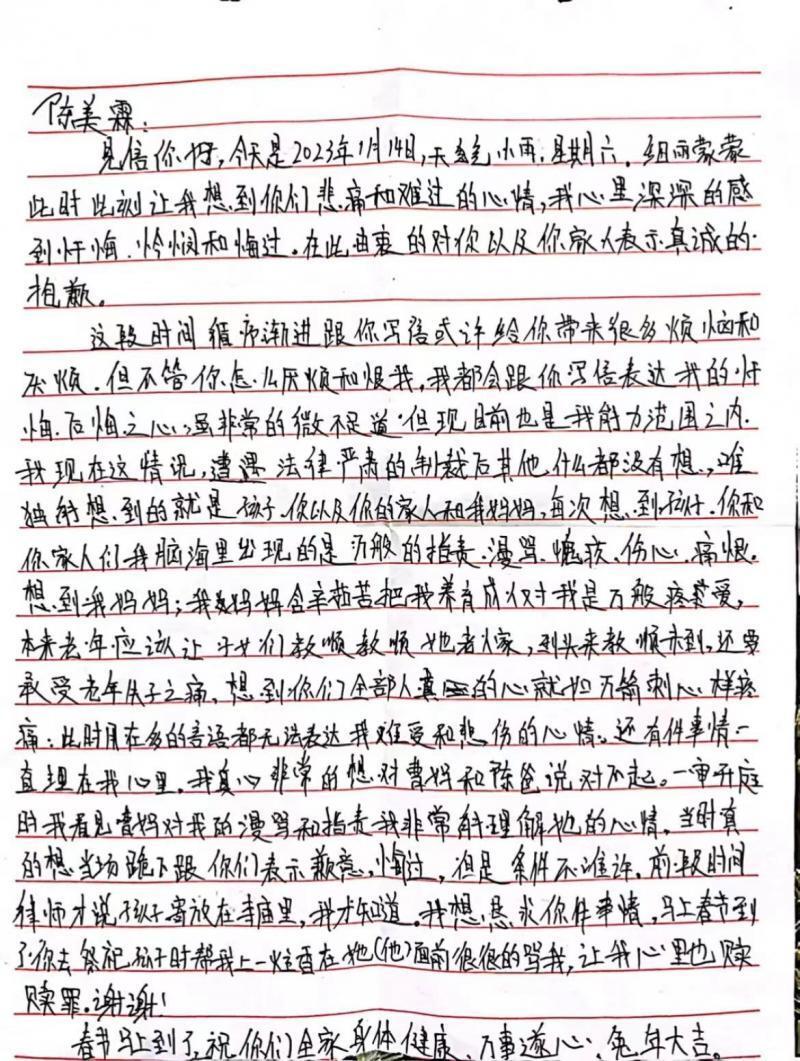 陈美霖：
见信你好，今天是2023年1月14日，天气小雨.星期六.细雨蒙蒙
此时此刻让我想到你们悲痛和难过的心情，我心里深深的感
到忏悔.怜悯和悔过.在此由衷的对你以及你家人表示真诚的
抱歉。
这段时间循序渐进跟你写信或许给你带来很多烦恼和
厌烦.但不管你怎么厌烦和恨我，我都会跟你写信表达我的忏
悔.后悔之心，虽非常的微不足道.但现目前也是我能力范围之内.
我现在这情况，遭遇法律严肃的制裁后其他什么都没有想，唯
独能想到的就是孩子.你以及你的家人和我妈妈，每次想到孩子.你和
你家人们我脑海里出现的是万般的指责.漫骂.愧疚.伤心.痛恨.
想到我妈妈；我妈妈含辛茹苦把我养育成人对我是万般疼爱，
本来老年应该让子女们教顺教顺她老人家，到头来教顺未到，还要
承受老年失子之痛.想到你们全部人真的心就如万箭刺心样疼
痛；此时用在多的言语都无法表达我难受和悲伤的心情。还有件事情一
直埋在我心里.我真心非常的想对曹妈和陈爸说对不起。一审开庭
时我看见曹妈对我的漫骂和指责我非常能理解她的心情.当时真
的想当场跪下跟你们表示歉意，悔过，但是条件不准许.前段时间
律师才说孩子寄放在寺庙里，我才知道.我想恳求你件事情，马上春节到
了你去祭祀孩子时帮我上一炷香在她(他)面前很很的骂我，让我心里也赎
赎罪.谢谢!
春节马上到了，祝你们全家身体健康.万事遂心.兔年大吉。